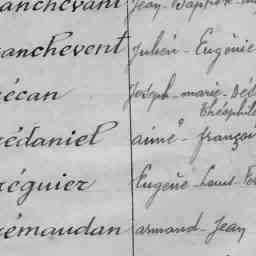 anchevant Jean-Baptiste
anchevent Julien-Eugène
écan Joseph-marie-Dés
Théophile
édaniel aimé-françoi
éguier Eugène-Louis
émaudan armand-Jean